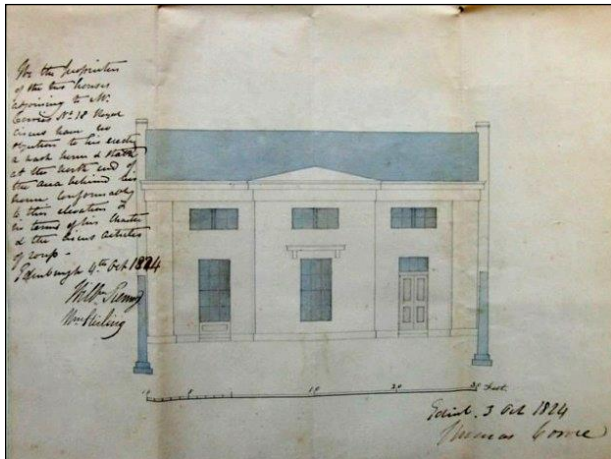 We the proprietors
of the two houses
adjoining to Mr
No 18 Royal
Circus have no
objection to his erecting
a wash house & stable
at the north end of
the area behind his
house conformably
to this elevation &
in terms of his Charter
& the Circus articles
of roup -
Edinburgh 4th Oct 1824
Wm Stirling
10
20
Feet
Edinr. 3 Oct 1824
Thomas